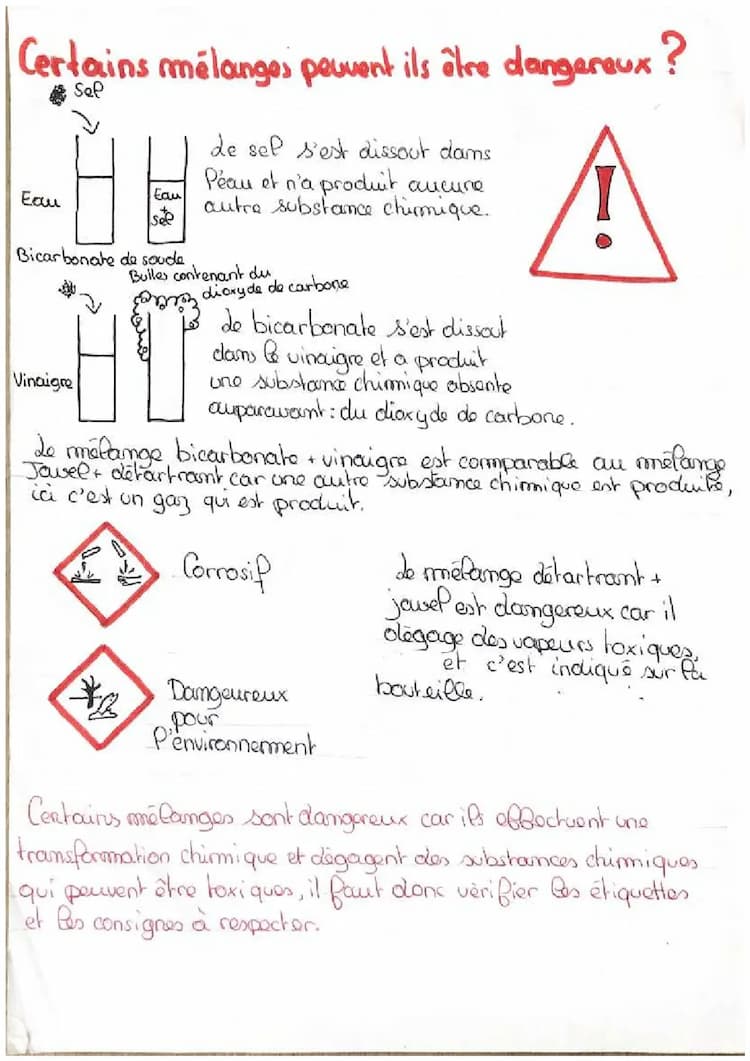 Certains mélanges peuvent ils être dangereux ?
Sel
Eau
Eau
+
sel
Le sel s'est dissout dans
l'eau et n'a produit aucune
autre substance chimique.
Bicarbonate de soude
Bulles contenant du
dioxyde de carbone
Vinaigre
Le bicarbonate s'est dissout
dans le vinaigre et a produit
une substance chimique absente
auparavant : du dioxyde de carbone.
Le mélange bicarbonate + vinaigre est comparable au mélange
Javel + détartrant car une autre substance chimique est produite,
ici c'est un gaz qui est produit.
Corrosif
Le mélange détartrant +
javel est dangereux car il
dégage des vapeurs toxiques,
et c'est indiqué sur la
bouteille.
Dangeureux
pour
l'environnement
Certains mélanges sont dangereux car ils effectuent une
transformation chimique et dégagent des substances chimiques
qui peuvent être toxiques, il faut donc vérifier les étiquettes
et les consignes à respecter.